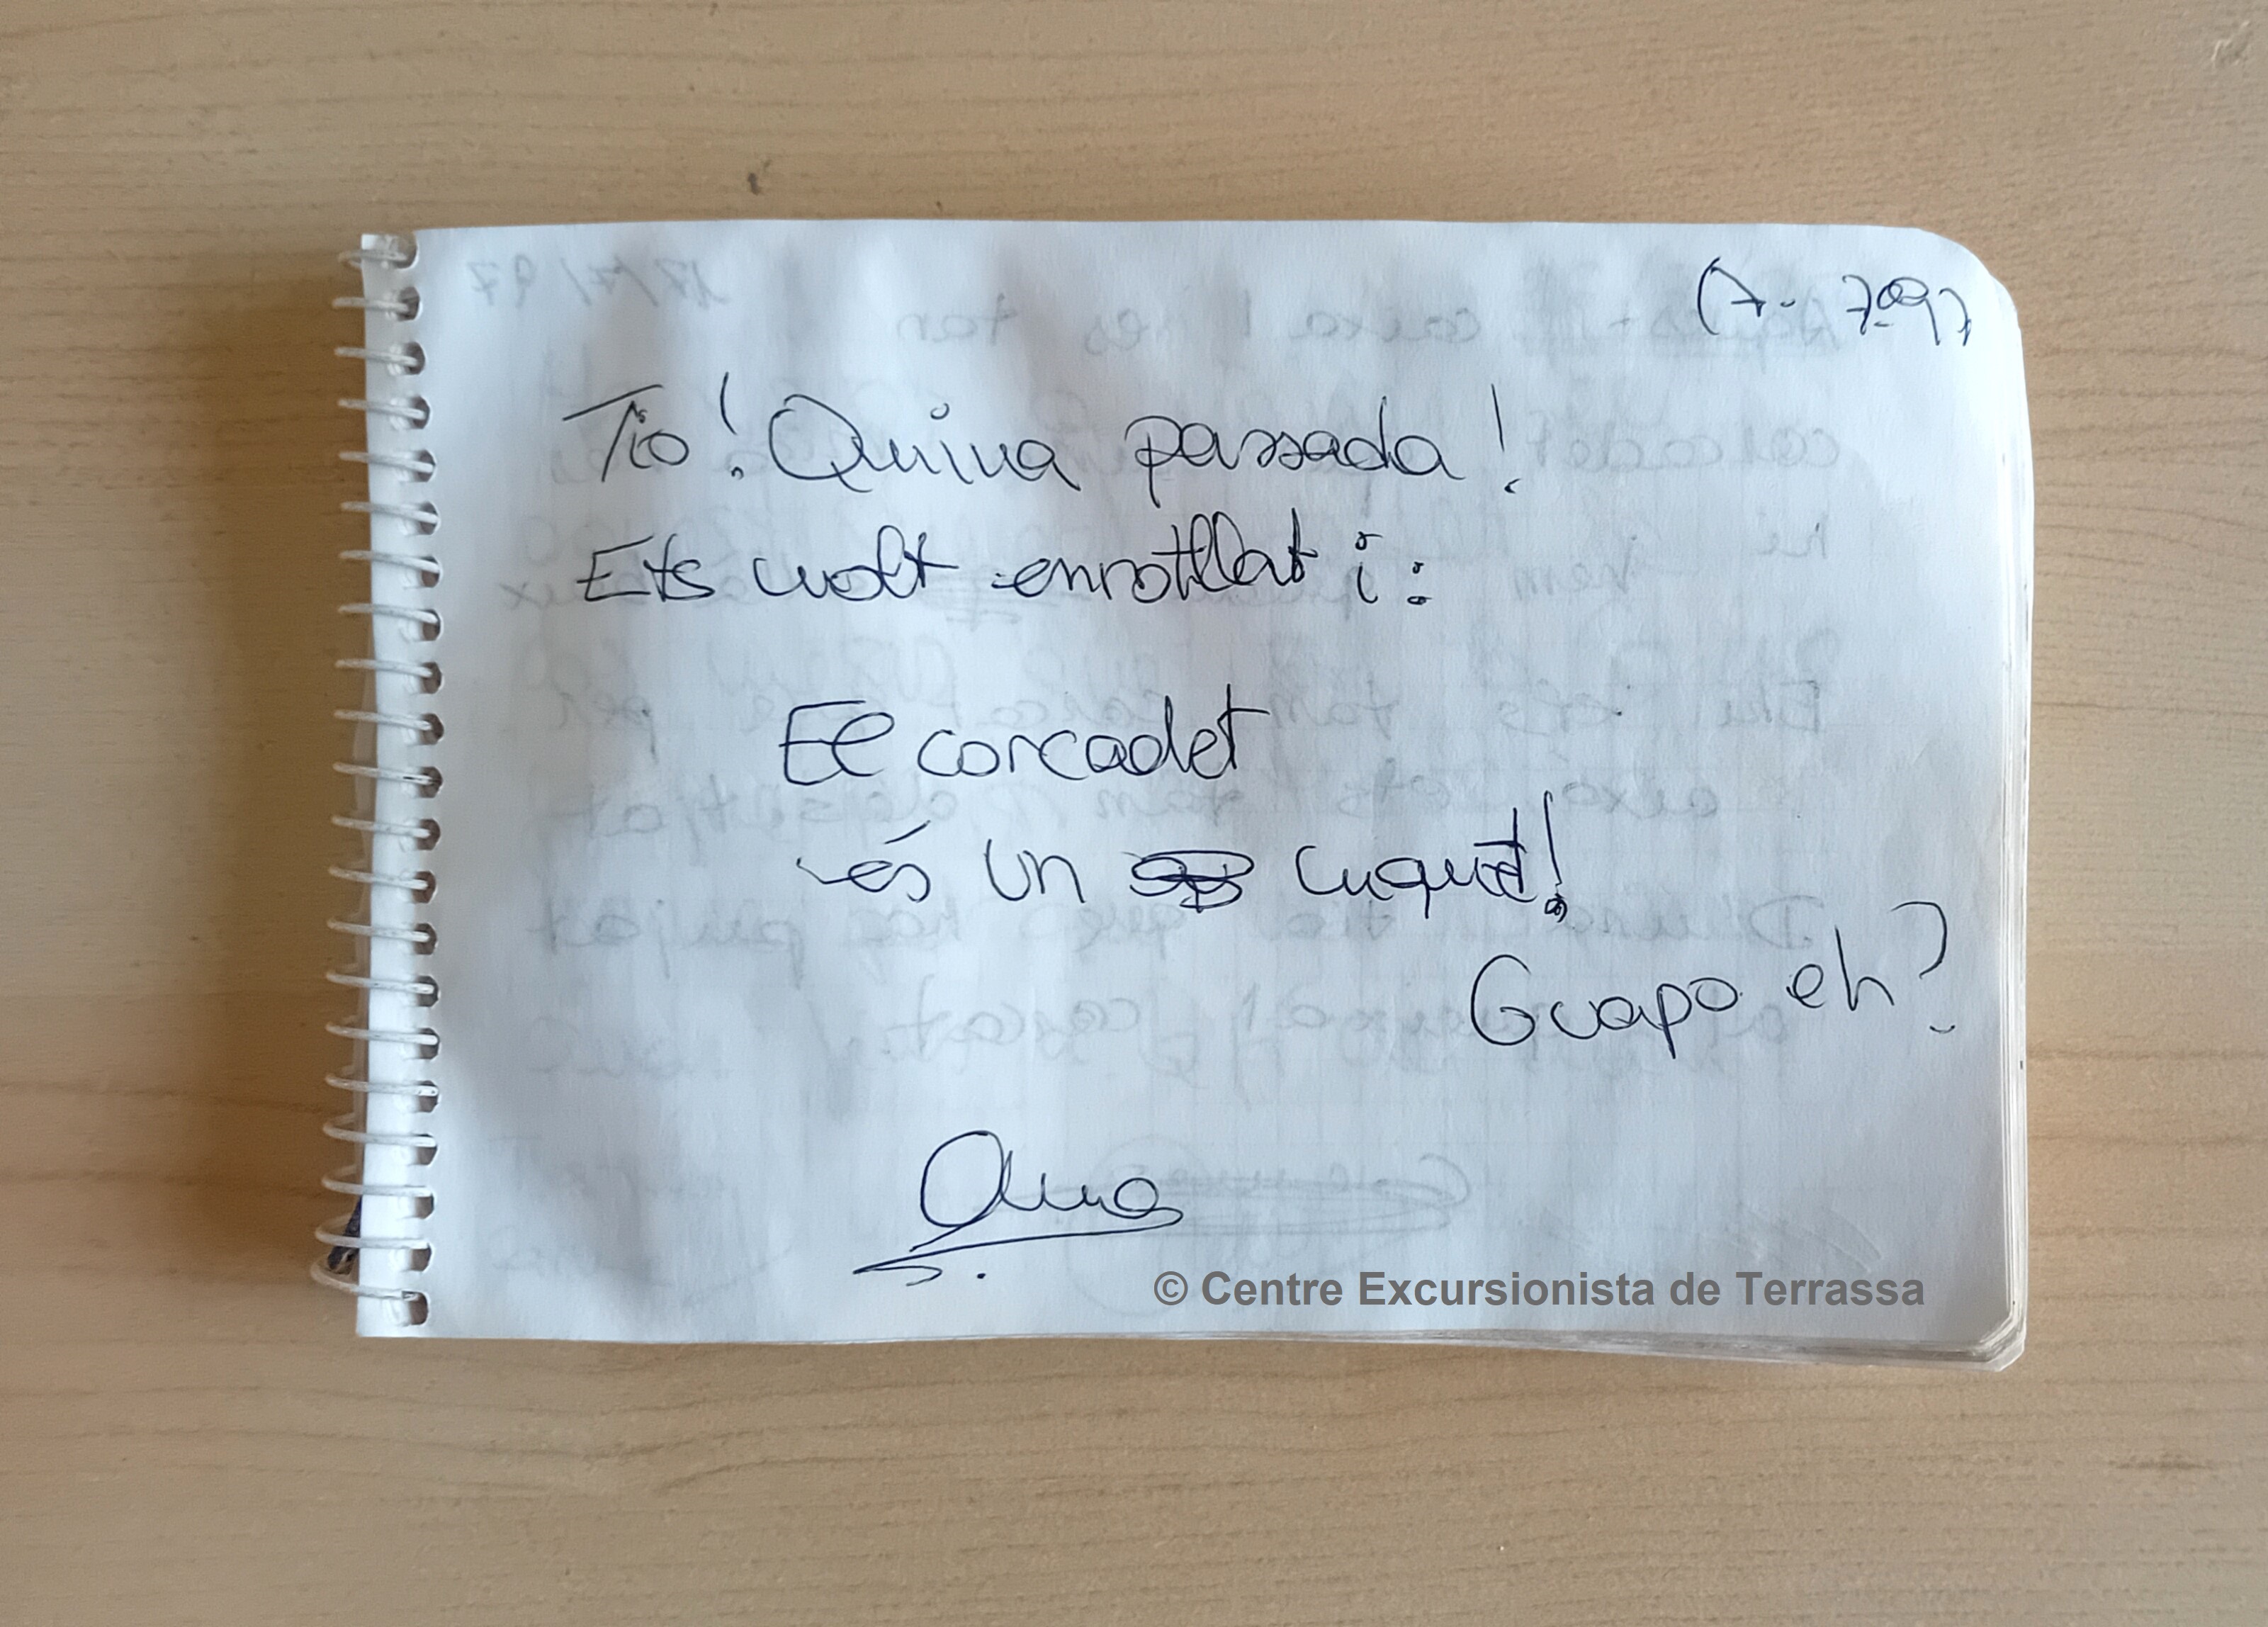 17-7-97
Tio! Quina passada!
Ets molt enrotllat i:
El corcadet
és un cuquet!
Guapo eh?
Anna
© Centre Excursionista de Terrassa